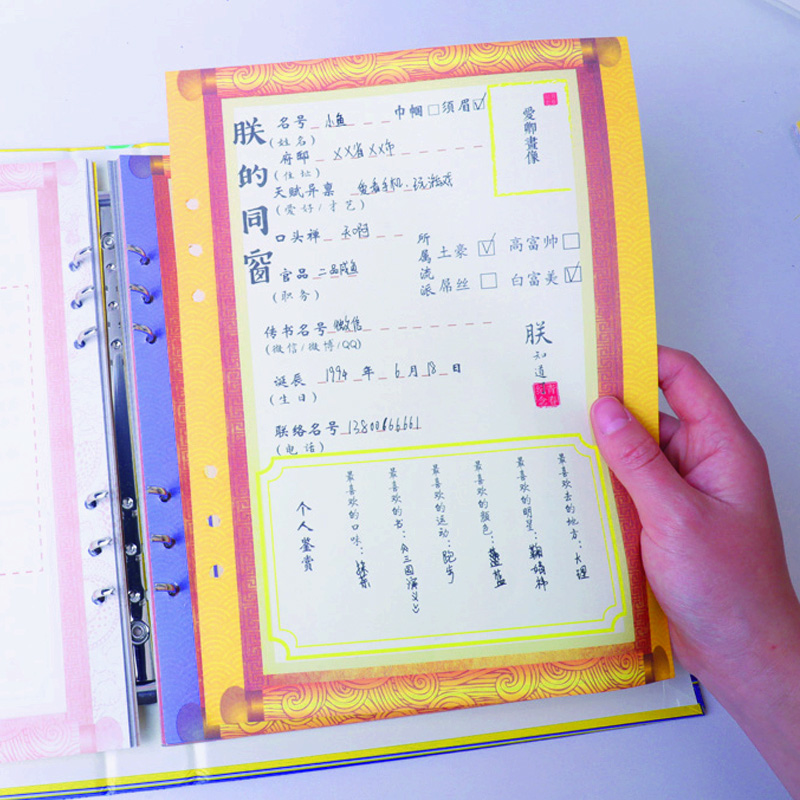 朕的同窗
名号 小鱼 巾帼□须眉☑
(姓名)
府邸 XX省XX市
(住址)
天赋异禀 鱼看手机、玩游戏
(爱好/才艺)
口头禅
官品 二品咸鱼
(职务)
传书名号 微信
(微信/微博/QQ)
诞辰 1994年6月18日
(生日)
联络名号 13800666661
(电话)
愛聊畫像
所属流派
土豪☑ 高富帅□
屌丝□ 白富美☑
朕知道
青春纪念
最喜欢去的地方:大理
最喜欢的明星:鞠婧祎
最喜欢的颜色:蓝
最喜欢的运动:跑步
最喜欢的书:《三国演义》
最喜欢的口味:抹茶
个人鉴赏